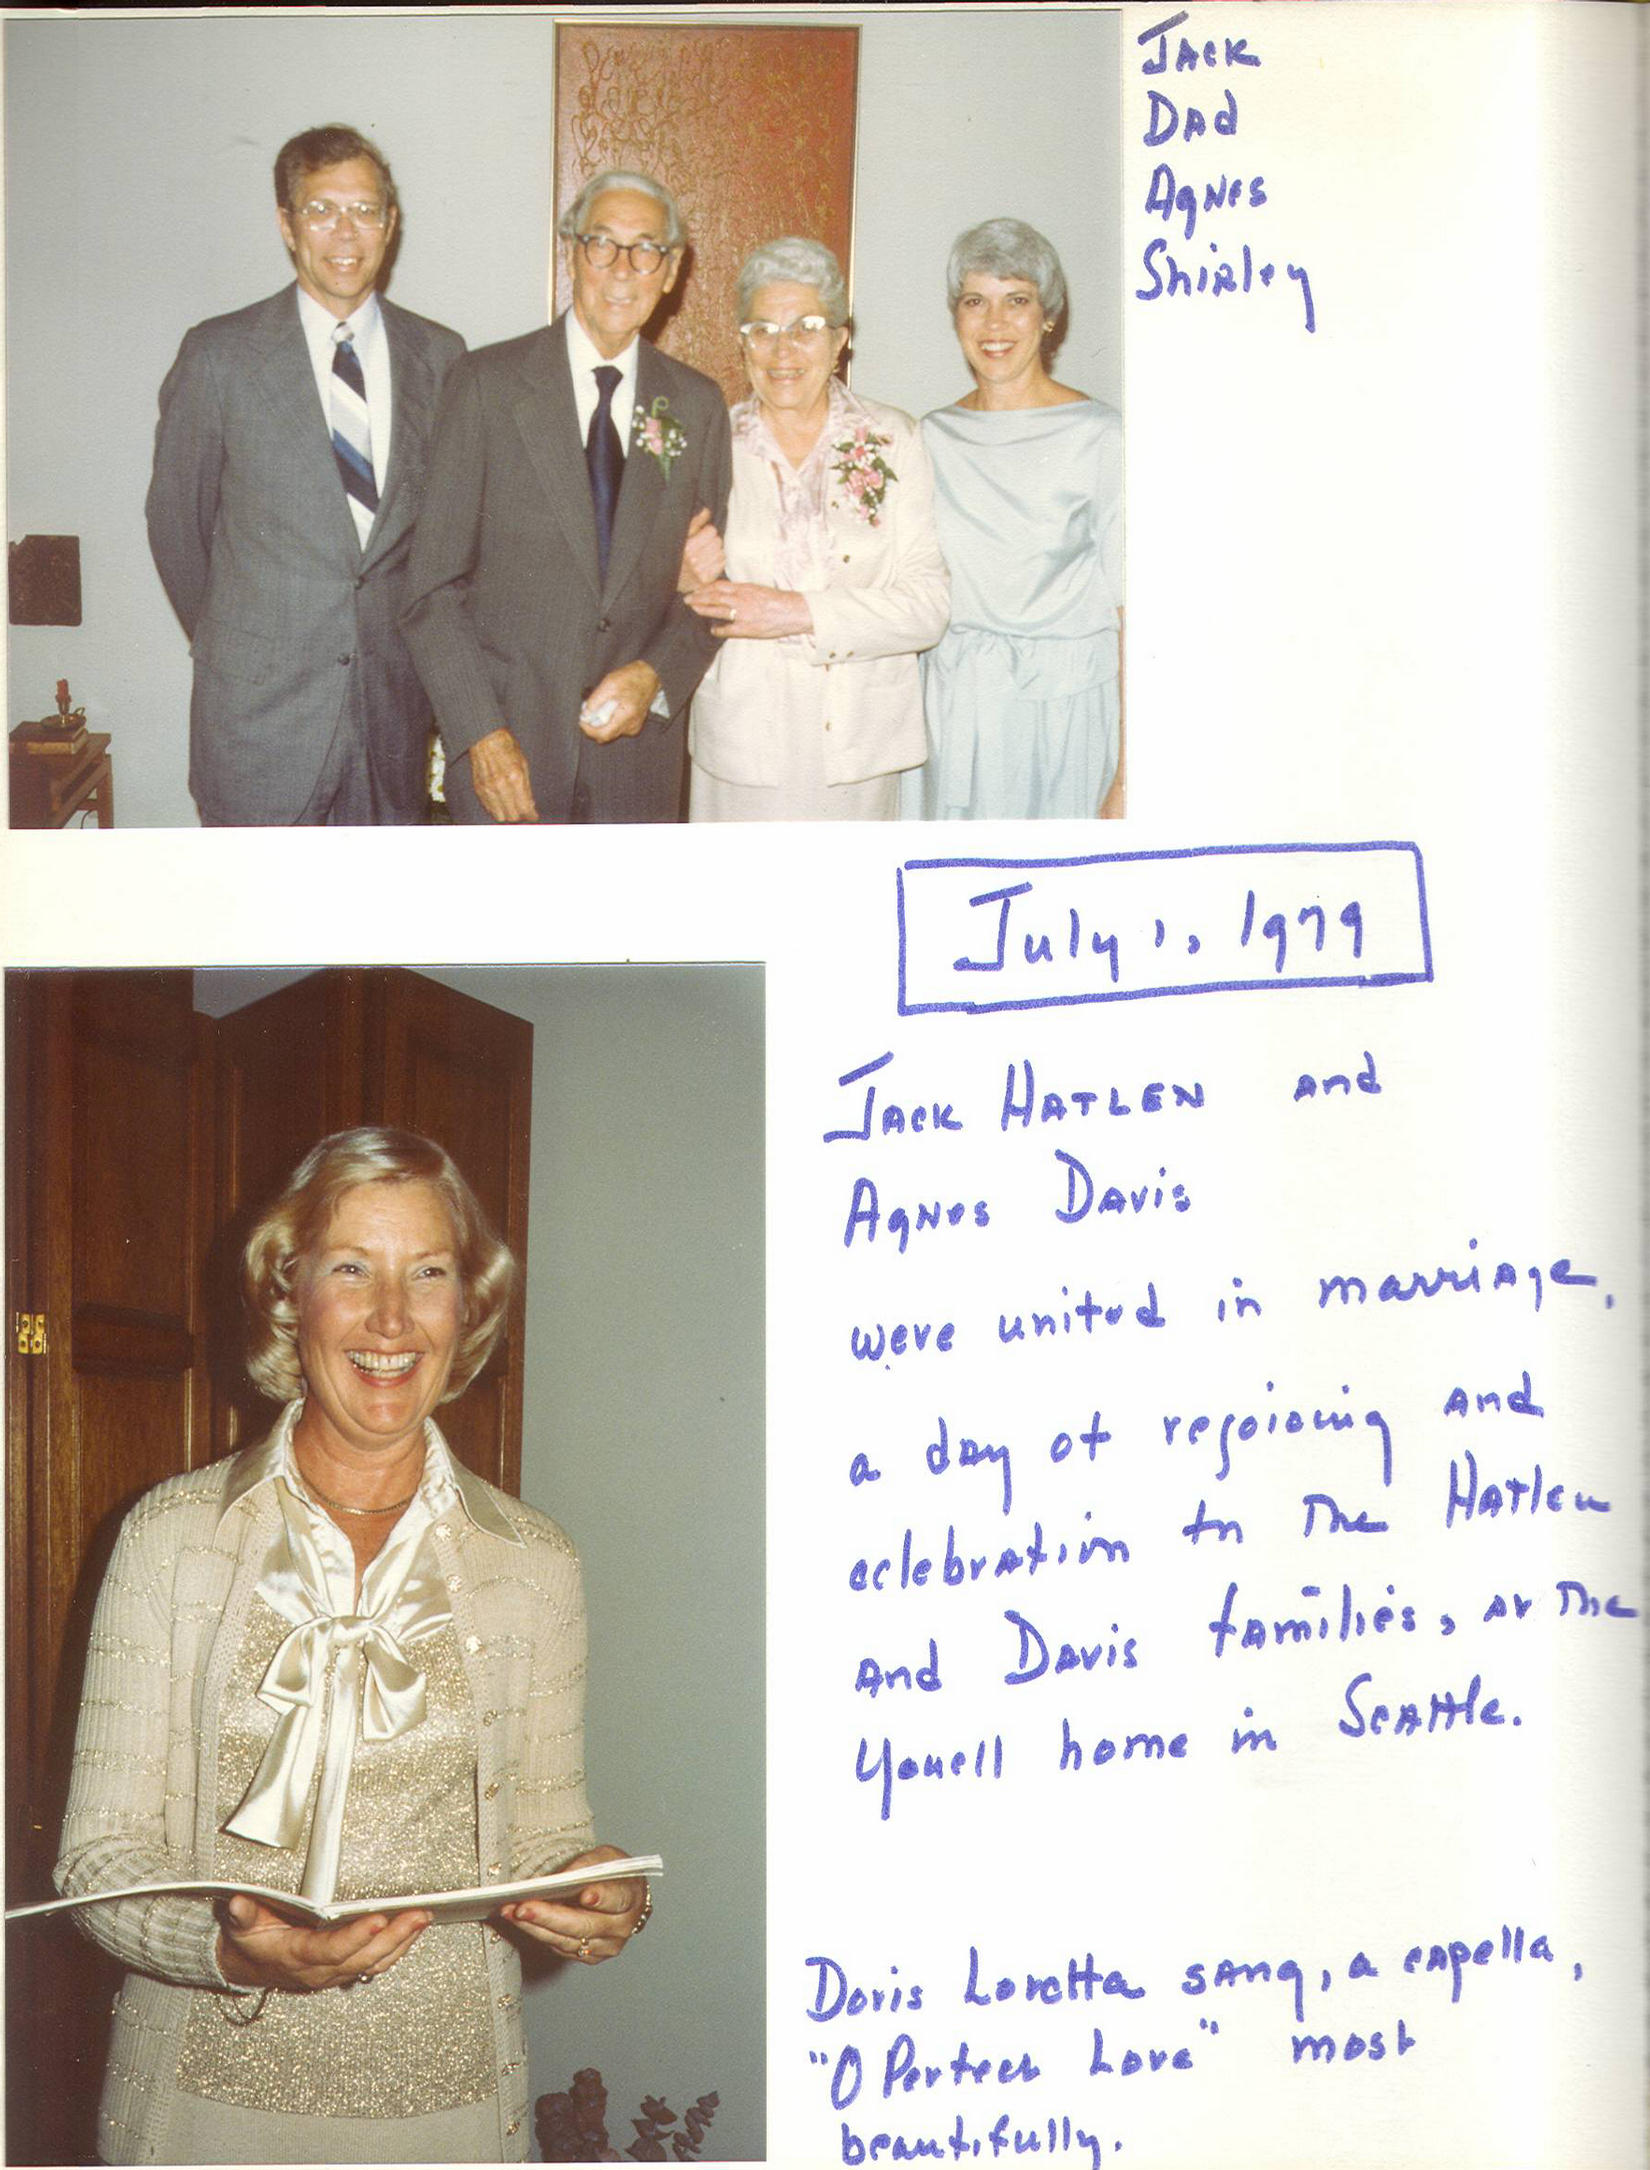 Jack
Dad
Agnes
Shirley
July 1, 1979
Jack Hatlen and
Agnes Davis
were united in marriage,
a day of rejoicing and
celebration to the Hatlen
and Davis families, at the
Youell home in Seattle.
Doris Loretta sang, a capella,
"O Perfect Love" most
beautifully.